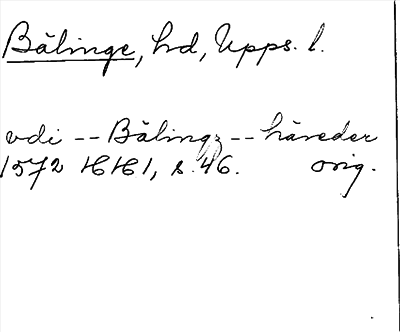 Bälinge, hd, Upps. l.
vdi -- Bäling -- häreder
1572 HH1, s. 46. orig.